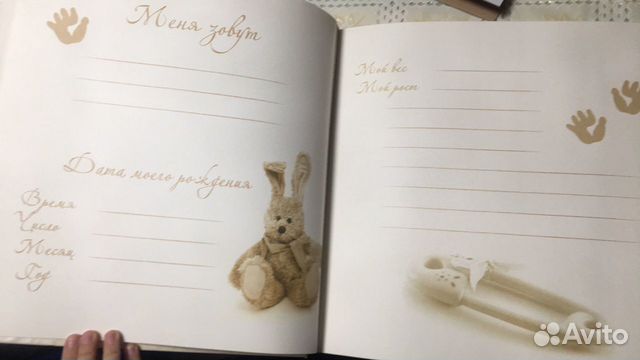 Меня зовут
Дата моего рождения
Время
Число
Месяц
Год
Мой вес
Мой рост
Avito